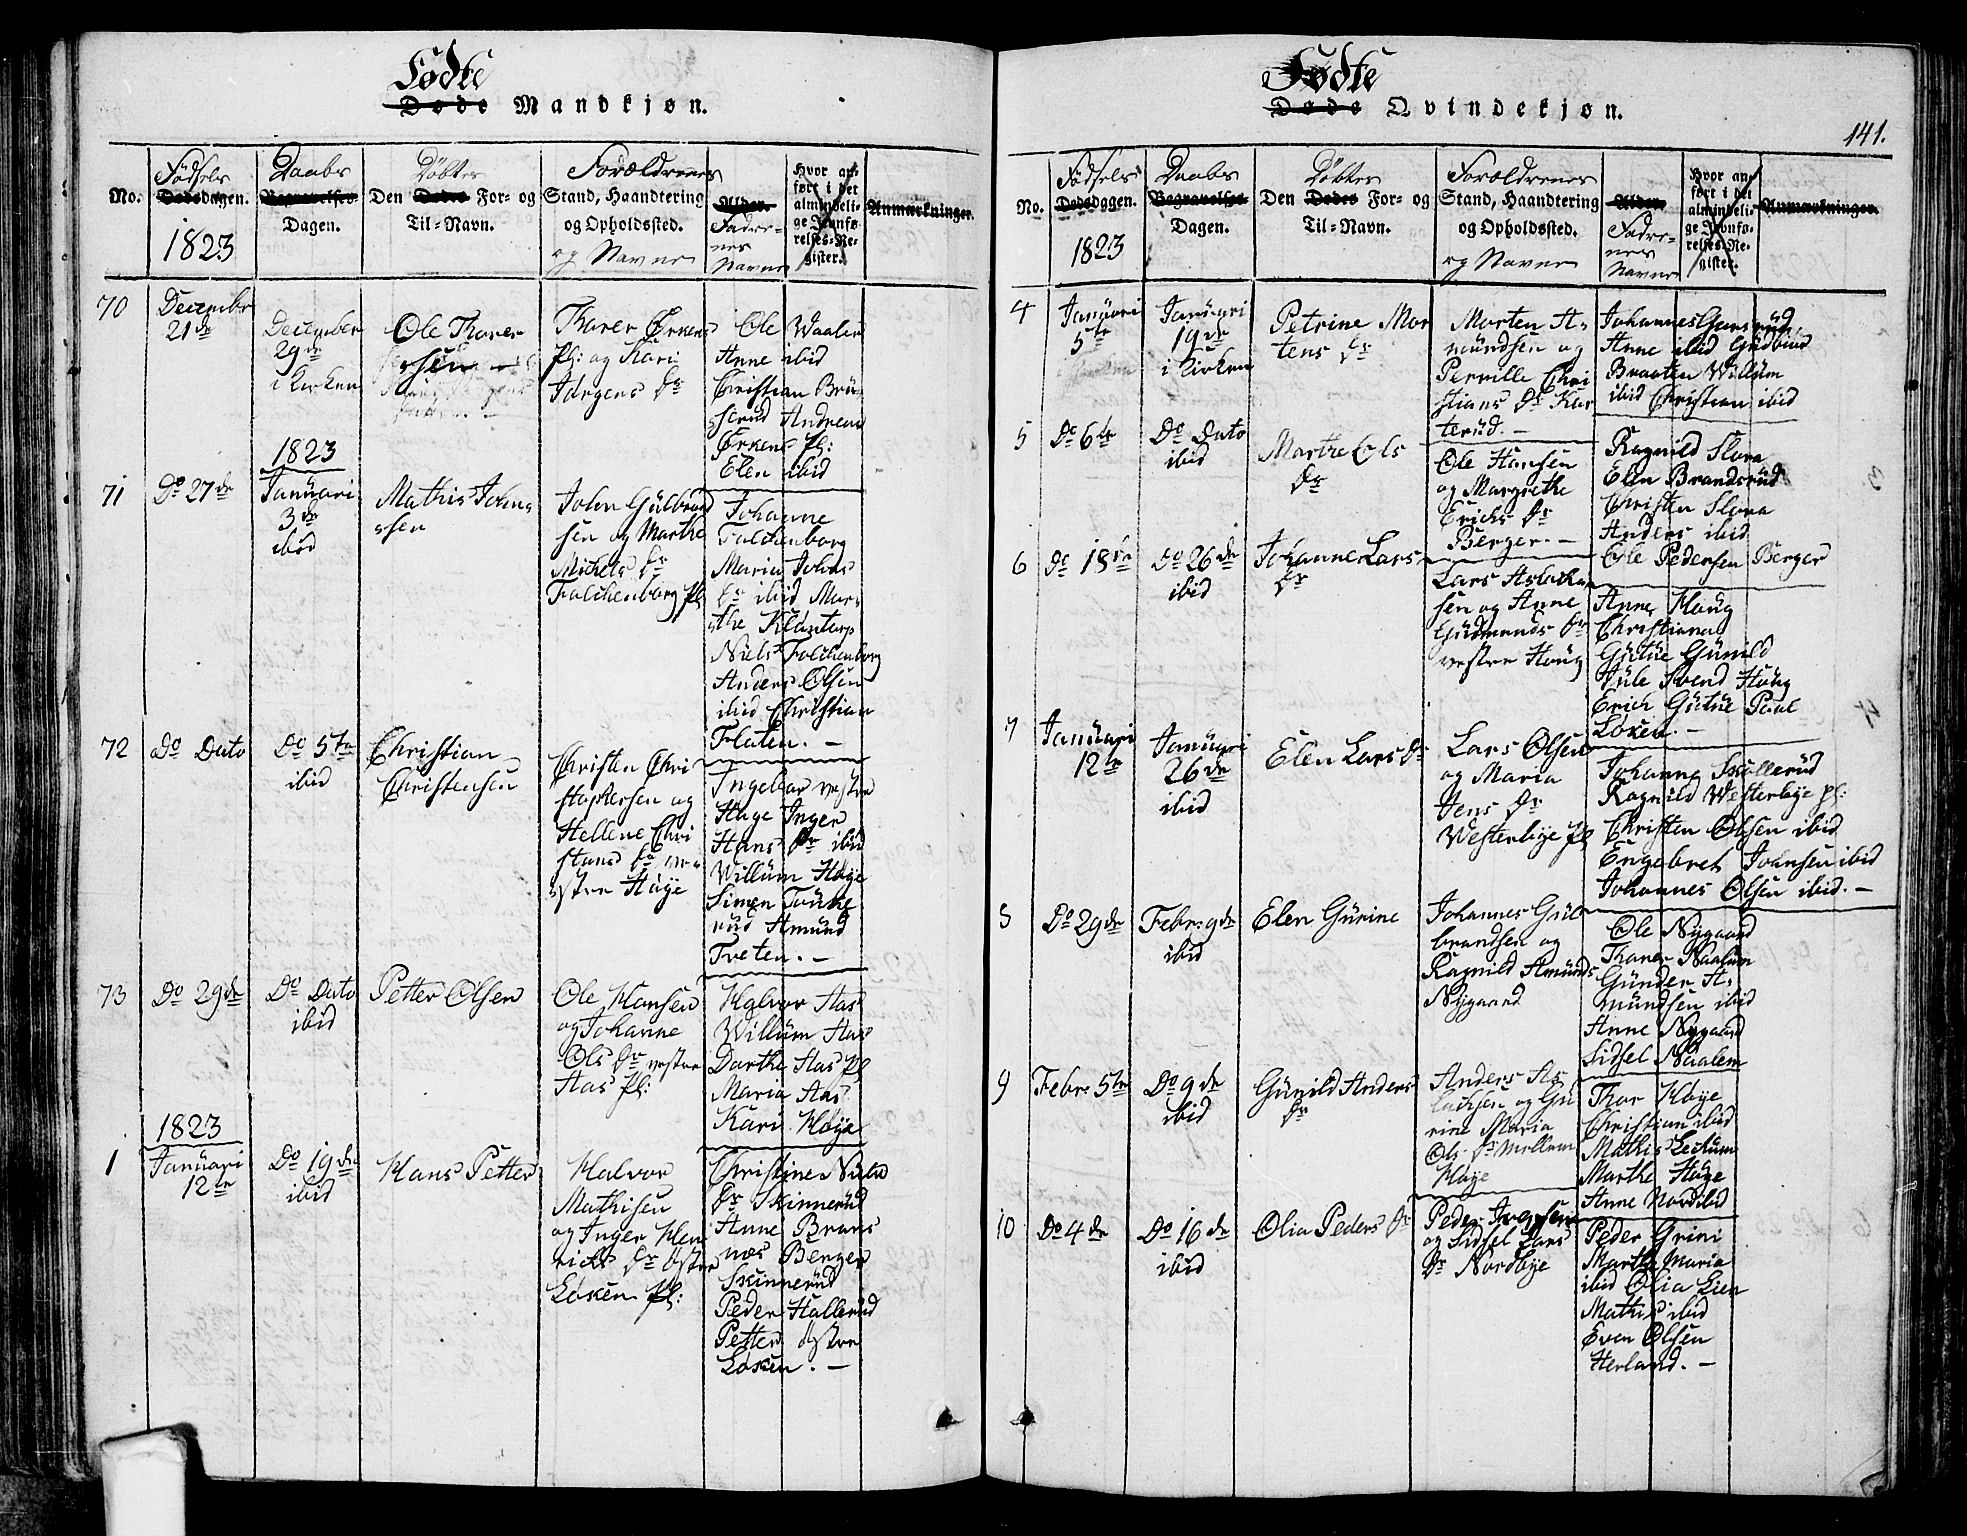 Födte
Døde Mandkjøn.
No.
Födsels
Dødsdagen.
1823
Daabs
Begravelses
Dagen.
Döbtes
Den Dødes For- og
Til-Navn.
Forældrenes
Stand, Haandtering
og Opholdssted.
og Navne
Alder.
Fadre-
nes
Navne
Hvor an-
ført i det
almindeli-
ge Jevnfø-
relses-Re-
gister.
Anmærkninger.
70
December
21de
December
29de
i Kirken
Ole Thorer
sen
Thorer Ørkens
Pl: og Kari
Jörgens Dr
Ole Waaler
Anne ibid
Christian Brü-
serud Andreas
Ørkens Pl:
Elen ibid
71
Do 27de
1823
Januari
3de
ibid
Mathis Johns
sen
John Gülbrand
sen og Marthe
Mickels Dr
Falchenborg Pl
Johanne
Falchenborg
Maria Johns
Dr ibid Mar-
the Klöntorp
Niels Falchenborg
Anders Olsen
ibid Christian
Flaten. –
72
Do Dato
Do 5te
ibid
Christian
Christensen
Christen Chri
stophersen og
Hellene Chri
stians Dr ve-
stre Höye
Ingebor vestre
Höye Inger
Hans Dr ibid
Willum Höye
Simen Tönne
rud Amund
Tveten. –
73
Do 29de
Do Dato
ibid
Petter Olsen
Ole Hansen
og Johanne
Ols Dr vestre
Aas Pl:
Halvor Aas
Willum Aas
Dorthe Aas Pl
Maria Aas
Kari Höye
1823
1
Januari
12te
Do 19de
ibid
Hans Petter
Halvor
Mathisen
og Inger Hen
richs Dr östre
Löken Pl:
Christine Niels
Dr Skinnerud
Anne Brans
nes Berger
Skinnerud
Peder Hallerud
Petter östre
Löken. –
Födte
Døde Qvindekjøn.
141.
No.
Födsels
Dødsdagen.
1823
Daabs
Begravelses
Dagen.
Döbtes
Den Dødes For- og
Til-Navn.
Forældrenes
Stand, Haandtering
og Opholdssted.
og Navne
Alder.
Fadre-
nes
Navne
Hvor an-
ført i det
almindeli-
ge Jevnfø-
relses-Re-
gister.
Anmærkninger.
4
Januari
5te
Januari
19de
i Kirken
Petrine Mor
tens Dr
Morten A-
mündsen og
Pernille Chri
stians Dr Kar
terud. –
Johannes Garsrud
Anne ibid Gudbiör
Braaten Willum
ibid Christian ibid
5
Do 6te
Do Dato
ibid
Marthe Ols
Dr
Ole Hansen
og Margrethe
Erichs Dr
Berger. –
Ragnild Slora
Elen Brandsrud
Christen Slora
Anders ibid
Ole Pedersen Berger
6
Do 18de
Do 26de
ibid
Johanne Lars
Dr
Lars Aslachen
sen og Anne
Gudmunds Dr
vestre Haug
Anne Haug
Christiane
Gutue Günild
Hüle Svend Haug
Erich Gutue Paul
Löken. –
7
Januari
12te
Januari
26de
ibid
Elen Lars Dr
Lars Olsen
og Maria
Jens Dr
Westerbye Pl
Johanne Skollerud
Ragnild Westerbye Pl:
Christen Olsen ibid
Engebret Johnsen ibid
Johannes Olsen ibid. –
8
Do 29de
Febr: 9de
ibid
Elen Gurine
Johannes Gul
brandsen og
Ragnild Amunds
Nygaard
Ole Nygaard
Thorer Naalum
Günder A-
mündsen ibid
Anne Nygaard
Sidsel Naalem
9
Febr: 5te
Do 9de
ibid
Günild Anders
Dr
Anders As
lachsen og Gu
rine Maria
Ols Dr Mellem
Höye
Thor Höye
Christian ibid
Mathis Leckum
Marthe Höye
Anne Nordbid
10
Do 4de
Do 16de
ibid
Olia Peders Dr
Peder Joensen
og Sidsel Lars
Dr Nordbye
Peder Grini
Marthe Maria
ibid Olia Lien
Mathis ibid
Even Olsen
Herland. –